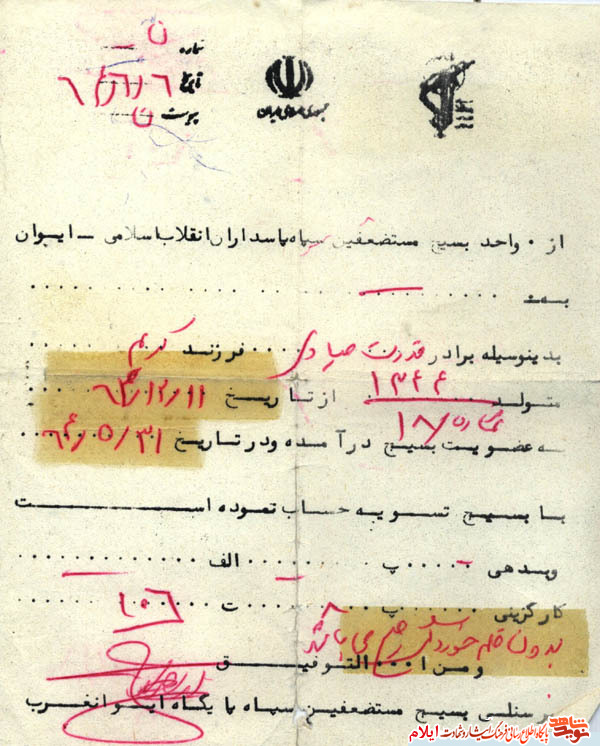 شماره ن
تاریخ ۶۴/۶/۱۶
پیوست ن
جمهوری اسلامی ایران
از ۰ واحد بسیج مستضعفین سپاه پاسداران انقلاب اسلامی - ایوان
به
بدینوسیله برادر قدرت صیادی فرزند کریم
متولد ۱۳۴۴ از تاریخ ۶۳/۱۲/۱۱
شماره ۱۸
به عضویت بسیج درآمده و در تاریخ ۶۴/۵/۳۱
با بسیج تسویه حساب نموده است
وبدهی پ الف
کارگزینی پ ۸ ت ۱۰۶
بدون قلم خوردگی می باشد
و من ا... التوفیق
پرسنلی بسیج مستضعفین سپاه پایگاه ایوانغرب
نوید شاهد
پایگاه اطلاع رسانی فرهنگ ایثار و شهادت ایلام